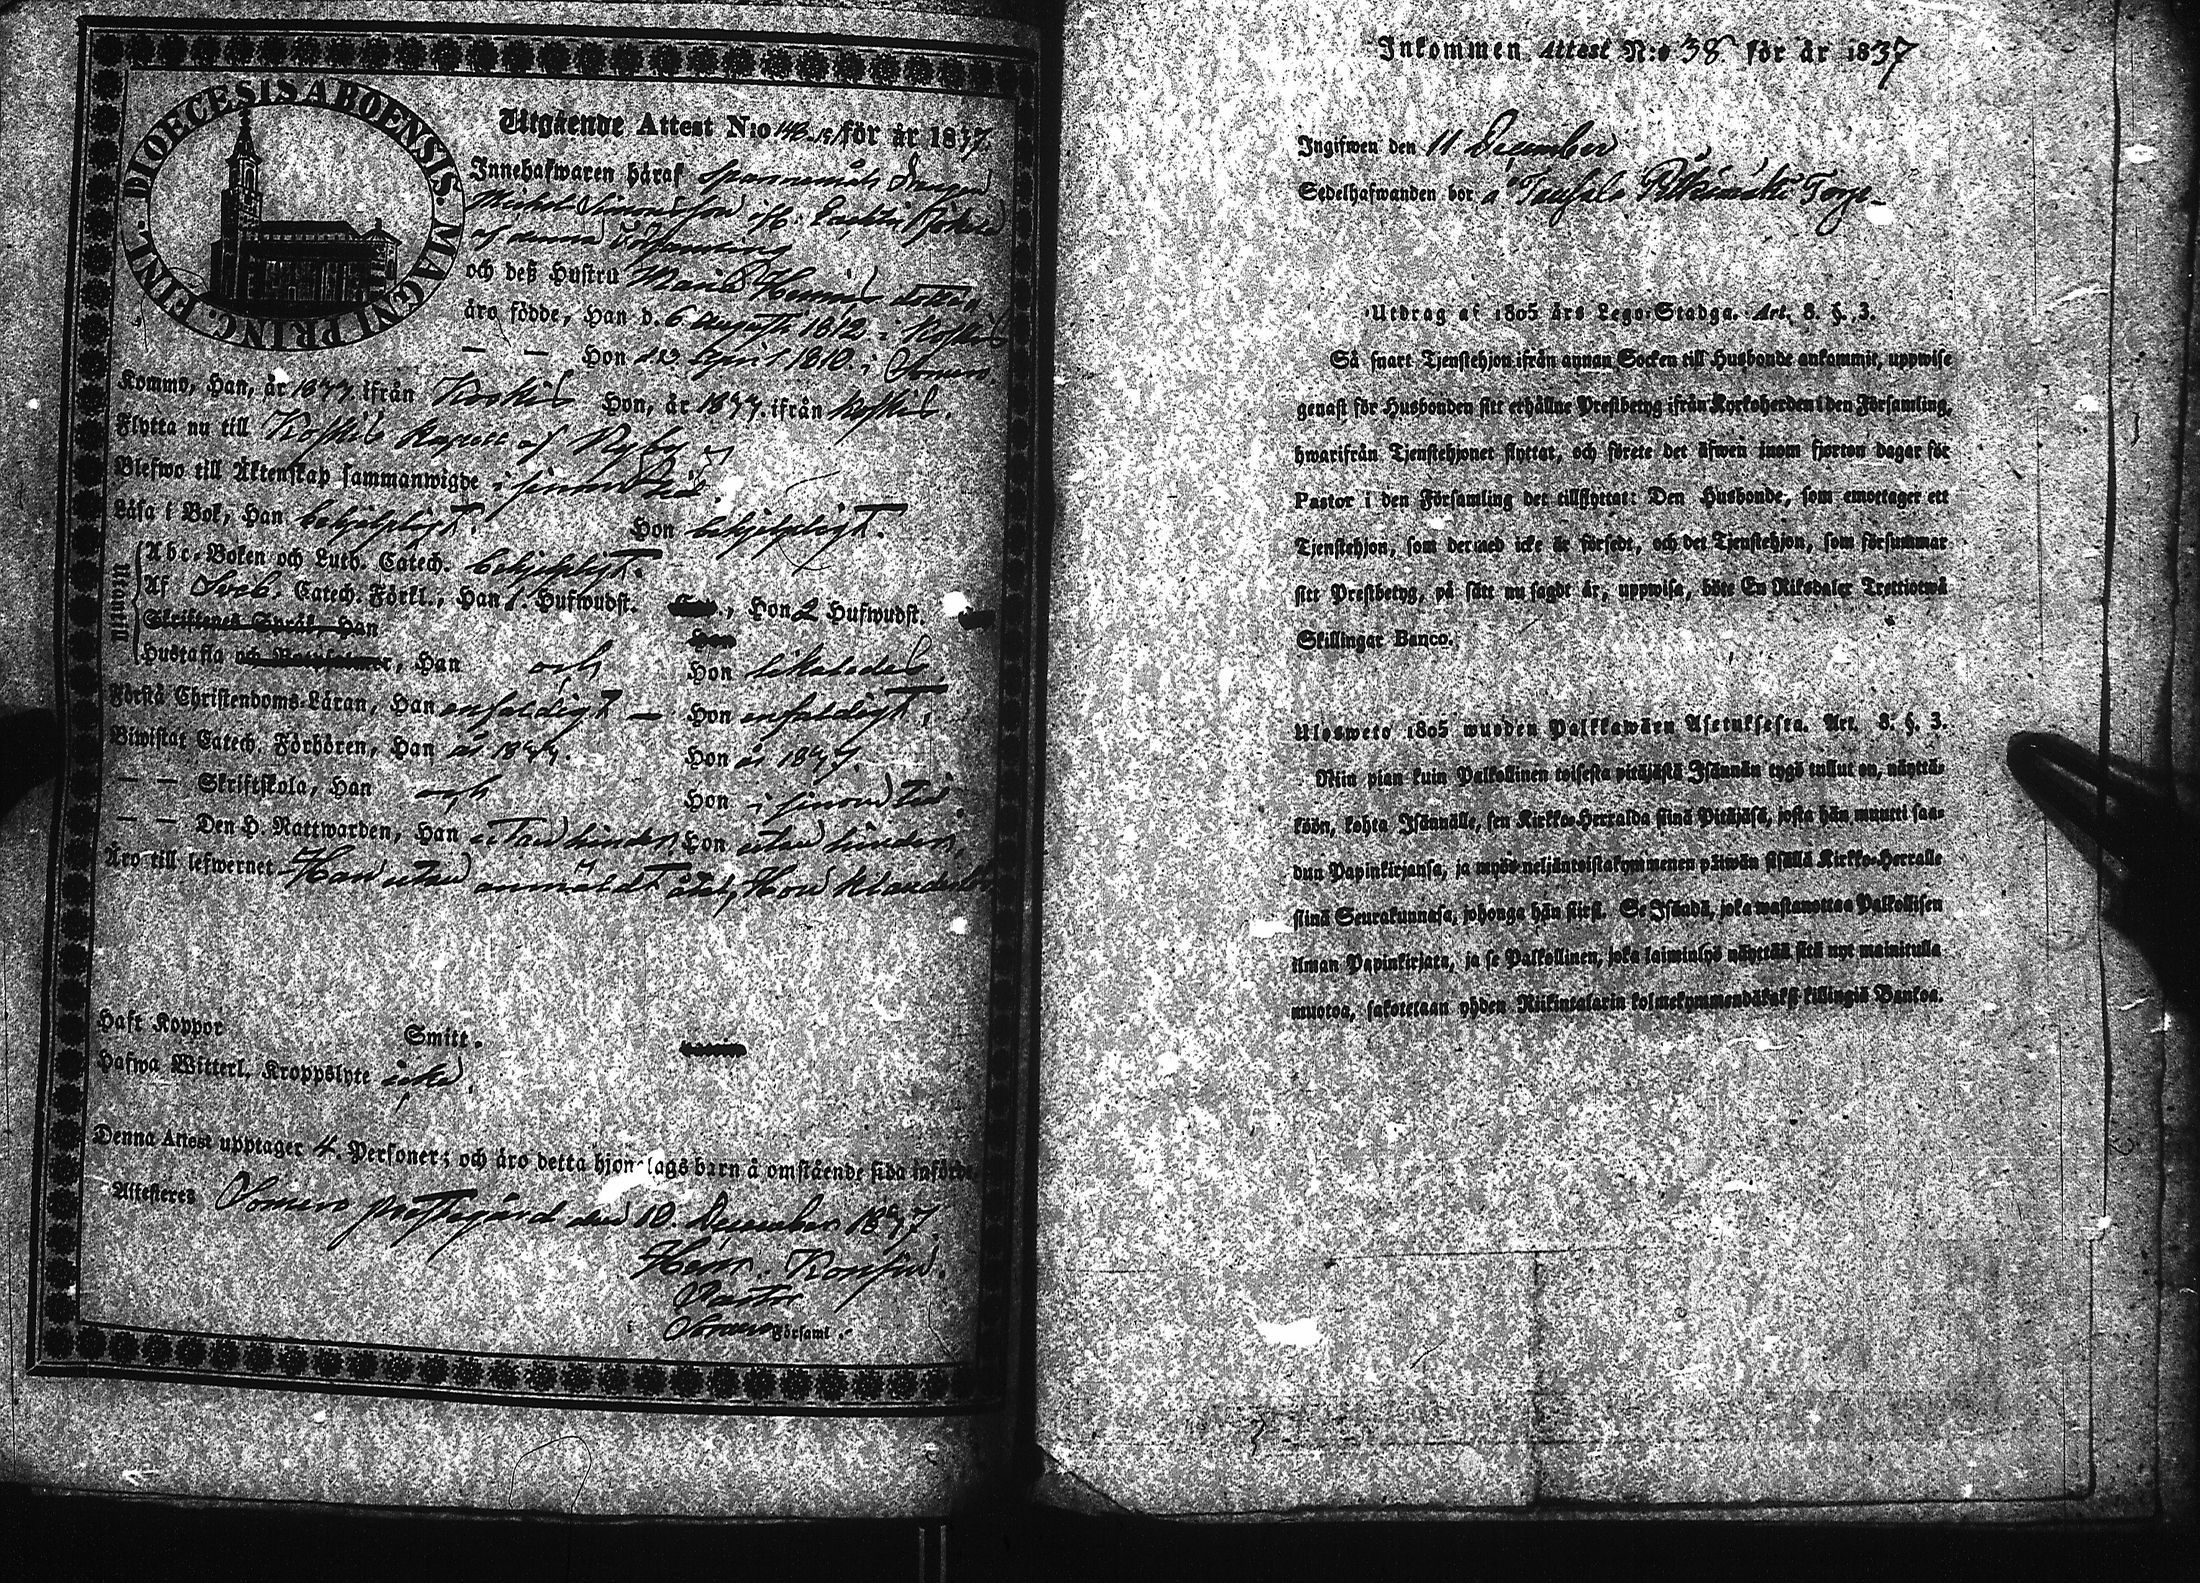 DIOECESIS ABOENSIS. MAGNI PRINC. FINL.
Utgående Attest N:o för år 1837.
Innehafwaren häraf
Michel Simonsson ifr.
af denna Församling
och deß Hustru Maria Henricsdotter,
äro födde, Han d. 6 Augusti 1812. i Koskis
— — Hon d. April 1810. i Somero.
Kommo, Han, år 1837. ifrån Koskis Hon, år 1837. ifrån Koskis.
Flytta nu till Koskis Kapell af
Blefwo till Äktenskap sammanwigde i sinom tid.
Läsa i Bok, Han behjelpligt. Hon behjelpligt.
Utantill
Abc-Boken och Luth. Catech. behjelpligt.
Af Sveb. Catech. Förkl., Han 1. Hufwudst. Hon 2 Hufwudst.
Skriftenes Språk, Han
Hustafla och, Han och Hon likaledes
Förstå Christendoms-Läran, Han enfaldigt — Hon enfaldigt,
Biwistat Catech. Förhören, Han år 1837. Hon år 1837.
— — Skriftskola, Han och Hon i sinom tid.
— — Den H. Nattwarden, Han utan hinder, Hon utan hinder,
Äro till lefwernet Han utan anmäldt åtal, Hon klanderlös
Haft Koppor Smitt.
Hafwa Witterl. Kroppslyte icke,
Denna Attest upptager 4. Personer; och äro detta hjonelags barn å omstående sida införde
Attesteras Somero prestegård den 10. December 1837.
Henr. Konsin.
Pastor
i Somero Församl.
Inkommen Attest N:o 38 för år 1837
Ingifwen den 11 December
Sedelhafwanden bor å Torp
Utdrag af 1805 års Lego-Stadga. Art. 8. §. 3.
Så snart Tjenstehjon ifrån annan Socken till Husbonde ankommit, uppwise
genast för Husbonden sitt erhållne Prestbetyg ifrån Kyrkoherden i den Församling,
hwarifrån Tjenstehjonet flyttat, och förete det äfwen inom fjorton dagar för
Pastor i den Församling det tillflyttat: Den Husbonde, som emottager ett
Tjenstehjon, som dermed icke är försedt, och det Tjenstehjon, som försummar
sitt Prestbetyg, på sätt nu sagdt är, uppwisa, böte En Riksdaler Trettiotwå
Skillingar Banco.
Ulosweto 1805 wuoden Palkkawäen Asetuksesta. Art. 8. §. 3.
Niin pian kuin Palkollinen toisesta pitäjästä Isännän tygö tullut on, näyttä-
köön, kohta Isännälle, sen Kirkko-Herralda siinä Pitäjäsä, josta hän muutti saa-
dun Papinkirjansa, ja myös neljäntoistakymmenen päiwän sisällä Kirkko-Herralle
siinä Seurakunnasa, johonga hän siirsi. Se Isändä, joka wastanottaa Palkollisen
ilman Papinkirjata, ja se Palkollinen, joka laiminlyö näyttää sitä nyt mainitulla
muotoa, sakotetaan yhden Riikintalarin kolmekymmendäkaksi killingiä Bankoa.